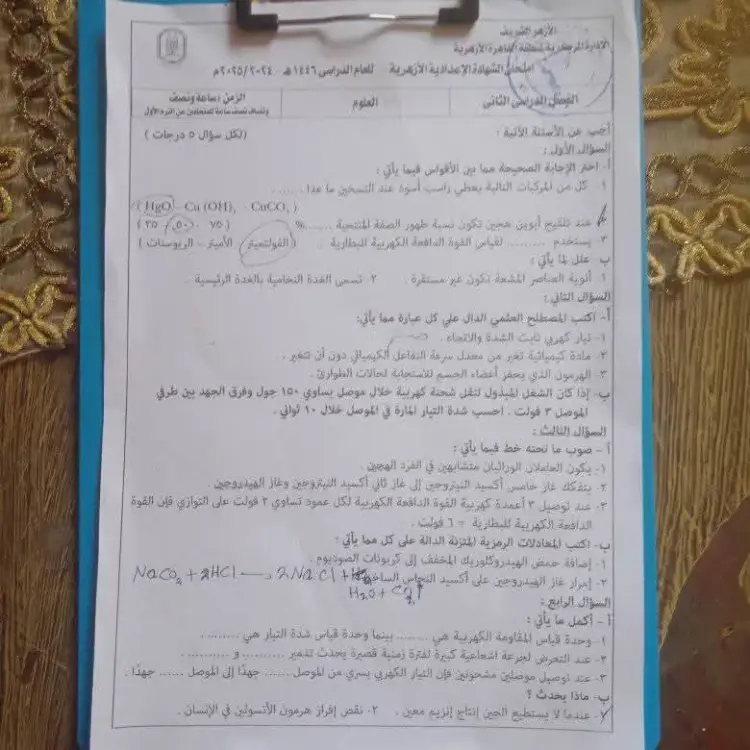 الأزهر الشريف
الإدارة المركزية لمنطقة القاهرة الأزهرية
امتحان الشهادة الإعدادية الأزهرية للعام الدراسى ١٤٤٦هـ - ٢٠٢٤/٢٠٢٥م
الفصل الدراسى الثانى
العلوم
الزمن : ساعة ونصف
أجب عن الأسئلة الآتية :
(لكل سؤال ٥ درجات)
السؤال الأول :
أ- اختر الإجابة الصحيحة مما بين الأقواس فيما يأتي :
١. كل من المركبات التالية يعطي راسب أسود عند التسخين ما عدا ........
( HgO – Cu (OH)₂ - CuCO₃ )
٢. عند تلقيح أبوين هجين تكون نسبة ظهور الصفة المتنحية ......%
( ٧٥ - ٥٠ - ٢٥ )
٣. يستخدم ......... لقياس القوة الدافعة الكهربية للبطارية .
( الفولتميتر – الأميتر – الريوستات )
ب- علل لما يأتي :
١. أنوية العناصر المشعة تكون غير مستقرة . ٢- تسمى الغدة النخامية بالغدة الرئيسية .
السؤال الثاني :
أ- اكتب المصطلح العلمي الدال علي كل عبارة مما يأتي:
١- تيار كهربي ثابت الشدة والاتجاه .
٢. مادة كيميائية تغير من معدل سرعة التفاعل الكيميائي دون أن تتغير .
٣. الهرمون الذي يحفز أعضاء الجسم للاستجابة لحالات الطوارئ .
ب- إذا كان الشغل المبذول لنقل شحنة كهربية خلال موصل يساوي ١٥٠ جول وفرق الجهد بين طرفي
الموصل ٣ فولت . احسب شدة التيار المارة في الموصل خلال ١٠ ثواني .
السؤال الثالث :
أ – صوب ما تحته خط فيما يأتي :
١- يكون العاملان الوراثيان متشابهين في الفرد الهجين .
٢- يتفكك غاز خامس أكسيد النيتروجين إلى غاز ثاني أكسيد النيتروجين وغاز الهيدروجين .
٣- عند توصيل ٣ أعمدة كهربية القوة الدافعة الكهربية لكل عمود تساوي ٢ فولت على التوازي فإن القوة
الدافعة الكهربية للبطارية = ٦ فولت .
ب- اكتب المعادلات الرمزية المتزنة الدالة على كل مما يأتي :
١- إضافة حمض الهيدروكلوريك المخفف إلى كربونات الصوديوم .
٢- إمرار غاز الهيدروجين على أكسيد النحاس الساخن
+ 2HCl → 2NaCl +
H₂O + CO₂↑
السؤال الرابع :
أ – أكمل ما يأتي :
١- وحدة قياس المقاومة الكهربية هي ........ بينما وحدة قياس شدة التيار هي .........
٢- عند التعرض لجرعة اشعاعية كبيرة لفترة زمنية قصيرة يحدث تدمير .......... و ..........
٣- عند توصيل موصلين مشحونين فإن التيار الكهربي يسري من الموصل ...... جهدًا إلى الموصل ...... جهدًا .
ب- ماذا يحدث ؟
١- عندما لا يستطيع الجين إنتاج إنزيم معين . ٢- نقص إفراز هرمون الأنسولين في الإنسان .